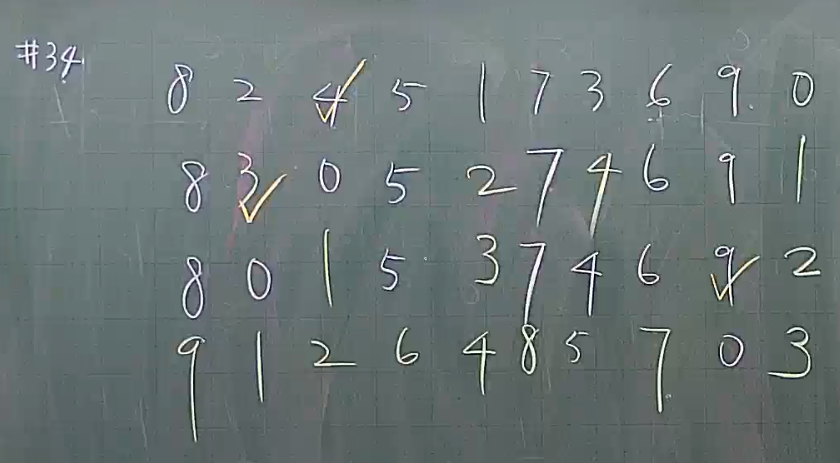 #34
8 2 4 5 1 7 3 6 9 0
8 3 0 5 2 7 4 6 9 1
8 0 1 5 3 7 4 6 9 2
9 1 2 6 4 8 5 7 0 3